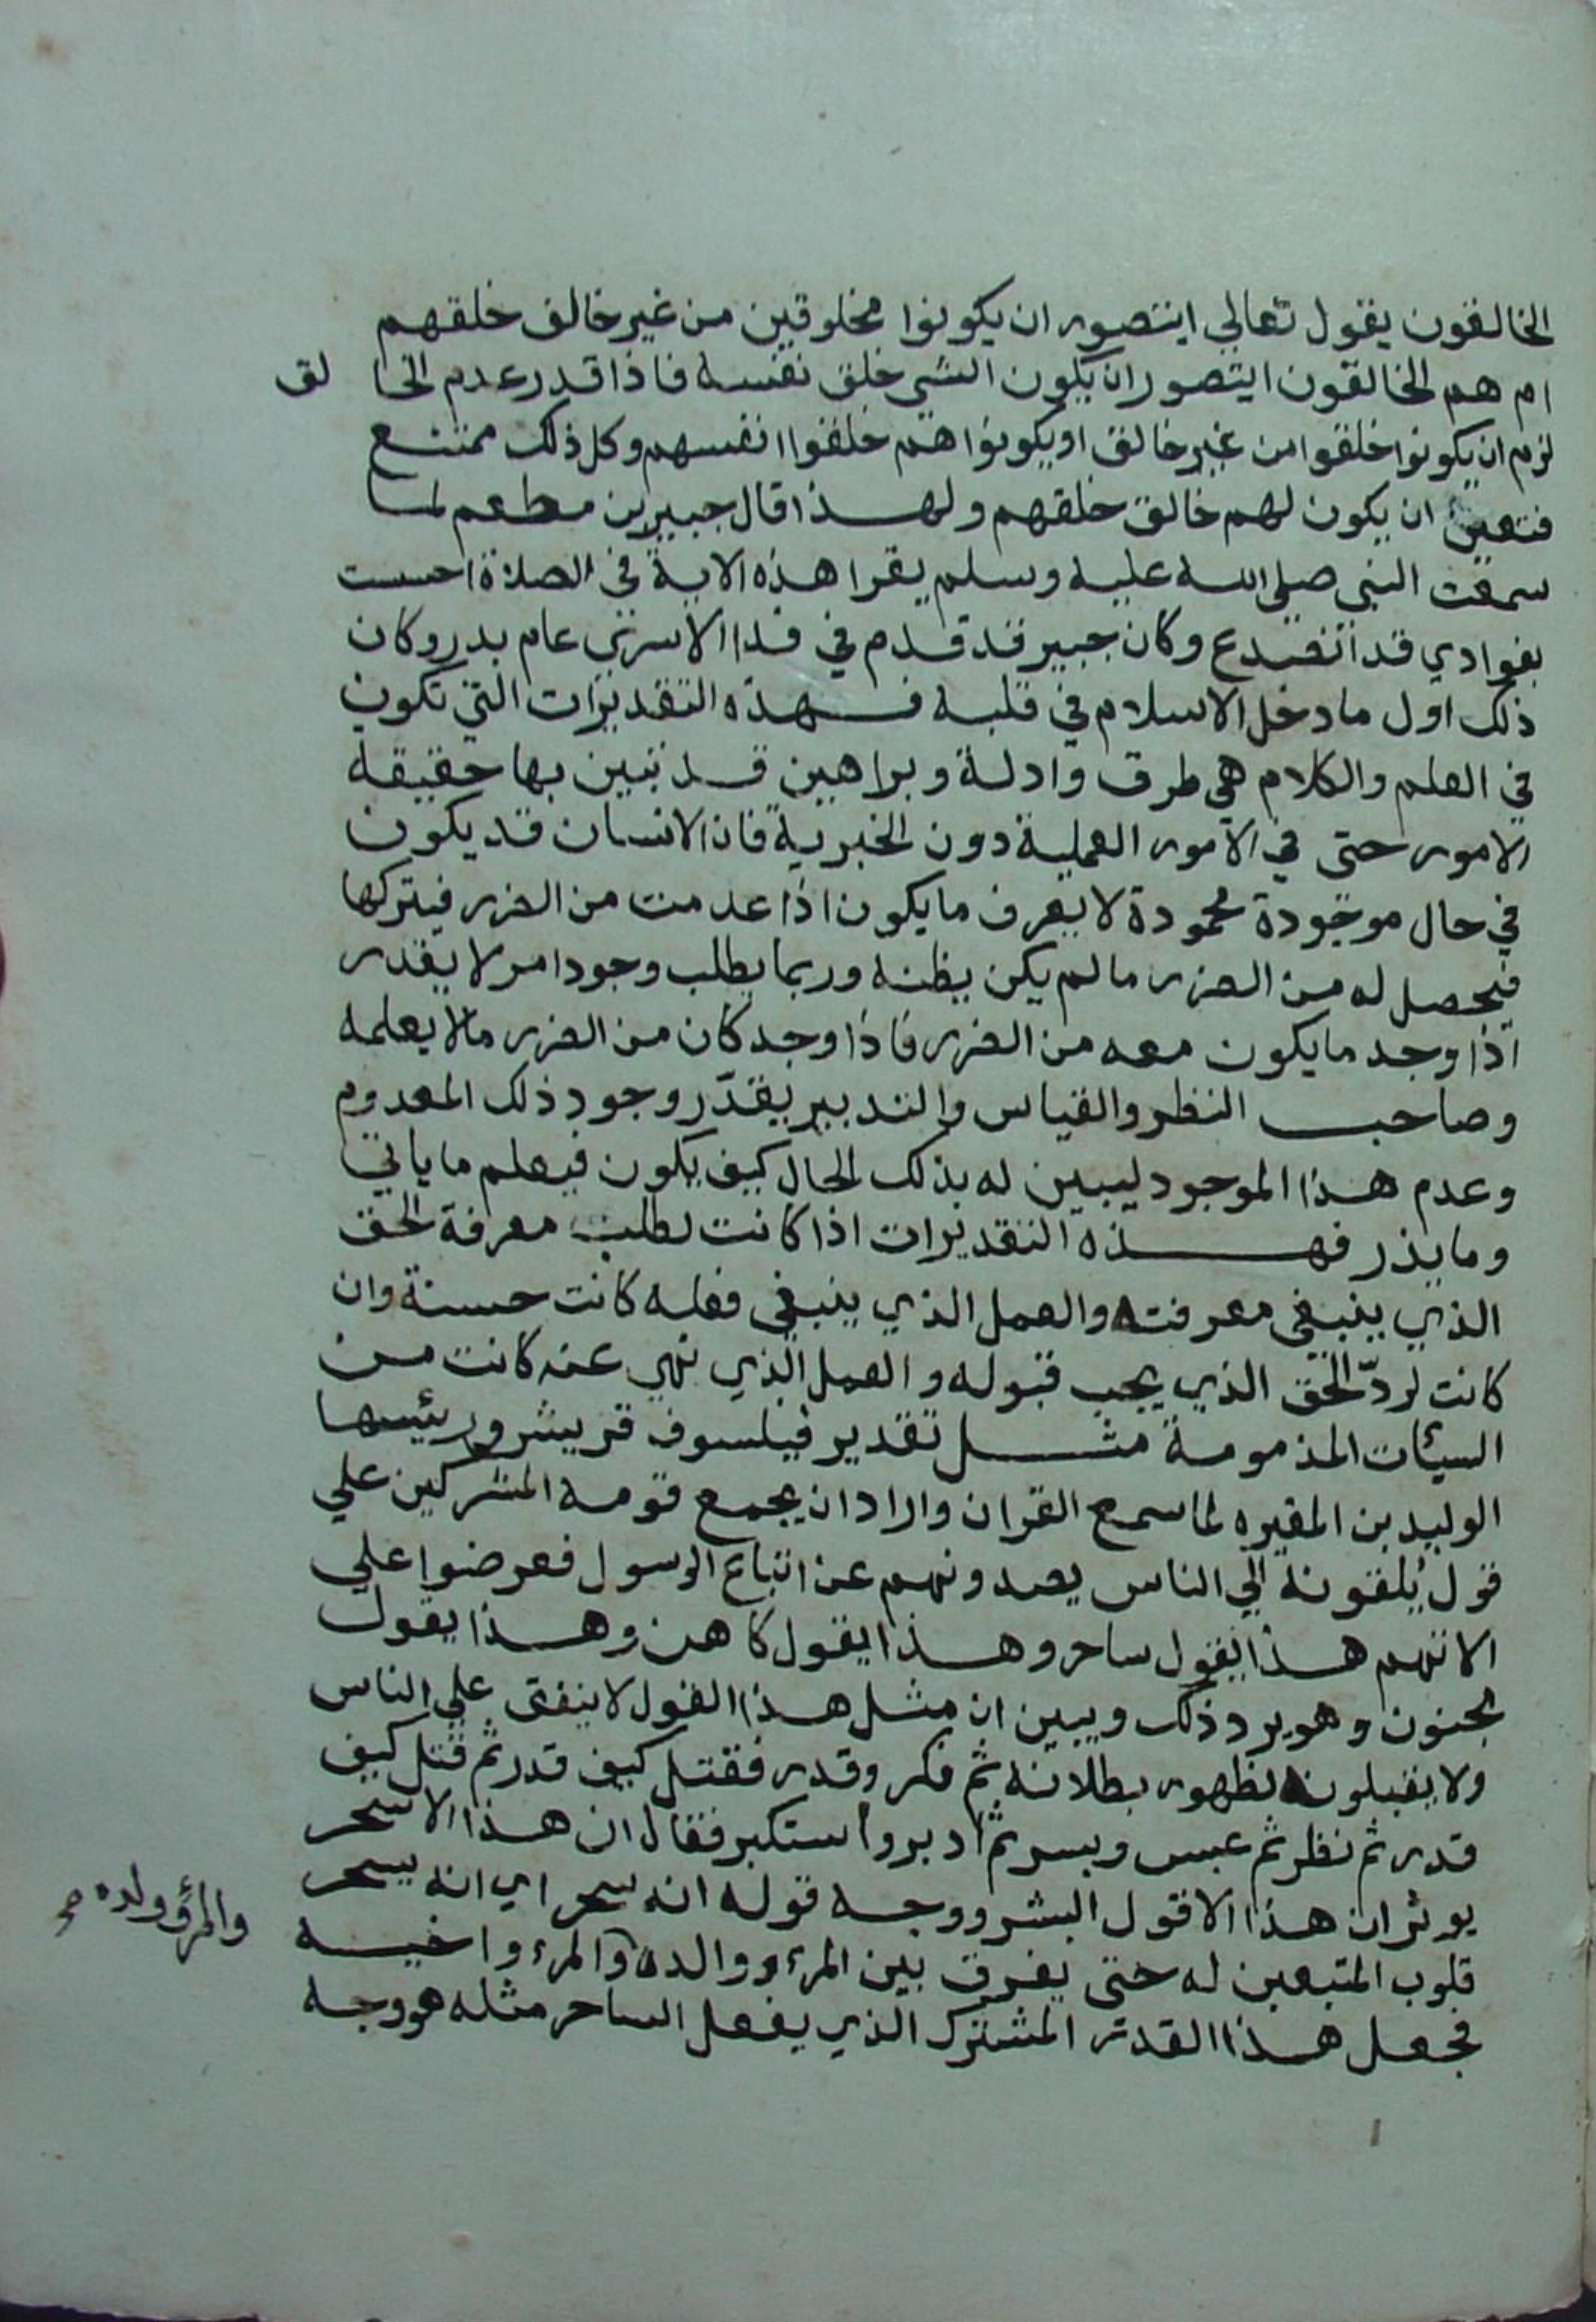 الخالقون يقول تعالي ايتصور ان يكونوا مخلوقين من غير خالق خلقهم
ام هم الخالقون ايتصور ان يكون الشي خلق نفسه فاذا قدر عدم الخالق
لزم ان يكونوا خلقوا من غير خالق او يكونوا هم خلقوا انفسهم وكل ذلك ممتنع
فتعين ان يكون لهم خالق خلقهم ولهذا قال جبير بن مطعم لما
سمعت النبي صلي الله عليه وسلم يقرا هذه الاية في الصلاة احست
بفوادي قد انصدع وكان جبير قد قدم في فدا الاسرى عام بدر وكان
ذلك اول ما دخل الاسلام في قلبه فهذه التقديرات التي تكون
في العلم والكلام هي طرق وادلة وبراهين قد تبين بها حقيقة
الامور حتى في الامور العملية دون الخبرية فان الانسان قد يكون
في حال موجودة محمودة لا يعرف ما يكون اذا عدمت من الضرر فيتركها
فيحصل له من الضرر ما لم يكن يظنه وربما يطلب وجود امر لا يقدر
اذا وجد ما يكون معه من الضرر فاذا وجد كان من الضرر مالا يعلمه
وصاحب النظر والقياس والتدبير يقدّر وجود ذلك المعدوم
وعدم هذا الموجود ليبين له بذلك الحال كيف يكون فيعلم ما ياتي
وما يذر فهذه التقديرات اذا كانت لطلب معرفة الحق
الذي ينبغي معرفته والعمل الذي ينبغي فعله كانت حسنة وان
كانت لردّ الحق الذي يجب قبوله والعمل الذي نهي عنه كانت من
السيئات المذمومة مثل تقدير فيلسوف قريش ورئيسها
الوليد بن المغيره لما سمع القران واراد ان يجمع قومه المشركين علي
قول يلقونه الي الناس يصدونهم عن اتباع الرسول فعرضوا علي
الانهم هذا يقول ساحر وهذا يقول كاهن وهذا يقول
مجنون وهو يرد ذلك ويبين ان مثل هذا القول لا ينفق علي الناس
ولا يقبلونه لظهور بطلانه ثم فكر وقدر فقتل كيف قدر ثم قتل كيف
قدر ثم نظر ثم عبس وبسر ثم ادبر واستكبر فقال ان هذا الا سحر
يوثر ان هذا الا قول البشر ووجه قوله انه سحر اي انه يسحر
قلوب المتبعين له حتى يفرق بين المرء ووالده والمرء واخيه
والمرؤ وولده صح
فجعل هذا القدر المشترك الذي يفعل الساحر مثله هو وجه